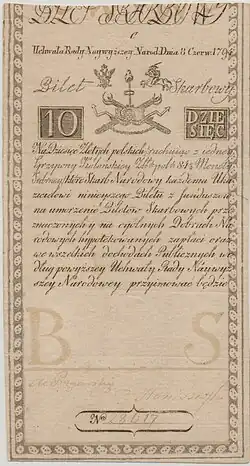 Uchwała Rady Naywyższey Narod. Dnia 8 Czerw. 1794
Bilet Skarbowy
10 DZIE
SIĘC
Na Dziesięc Złotych polskich rachuiąc z iedney
Grzywny Kolońskiey Złotych 84½ Monety
Srebrney, które Skarb Narodowy każdemu Uka-
zicielowi ninieyszego Biletu z funduszow
na umorzenie Biletow Skarbowych prze-
znaczonych y na ogulnych Dobrach Na
rodowych hypotekowanych zapłaci oraz
we wszelkich dochodach Publicznych we
dług powyższey Uchwały Rady Naywyż-
szey Narodowey przyimować będzie
B S
No